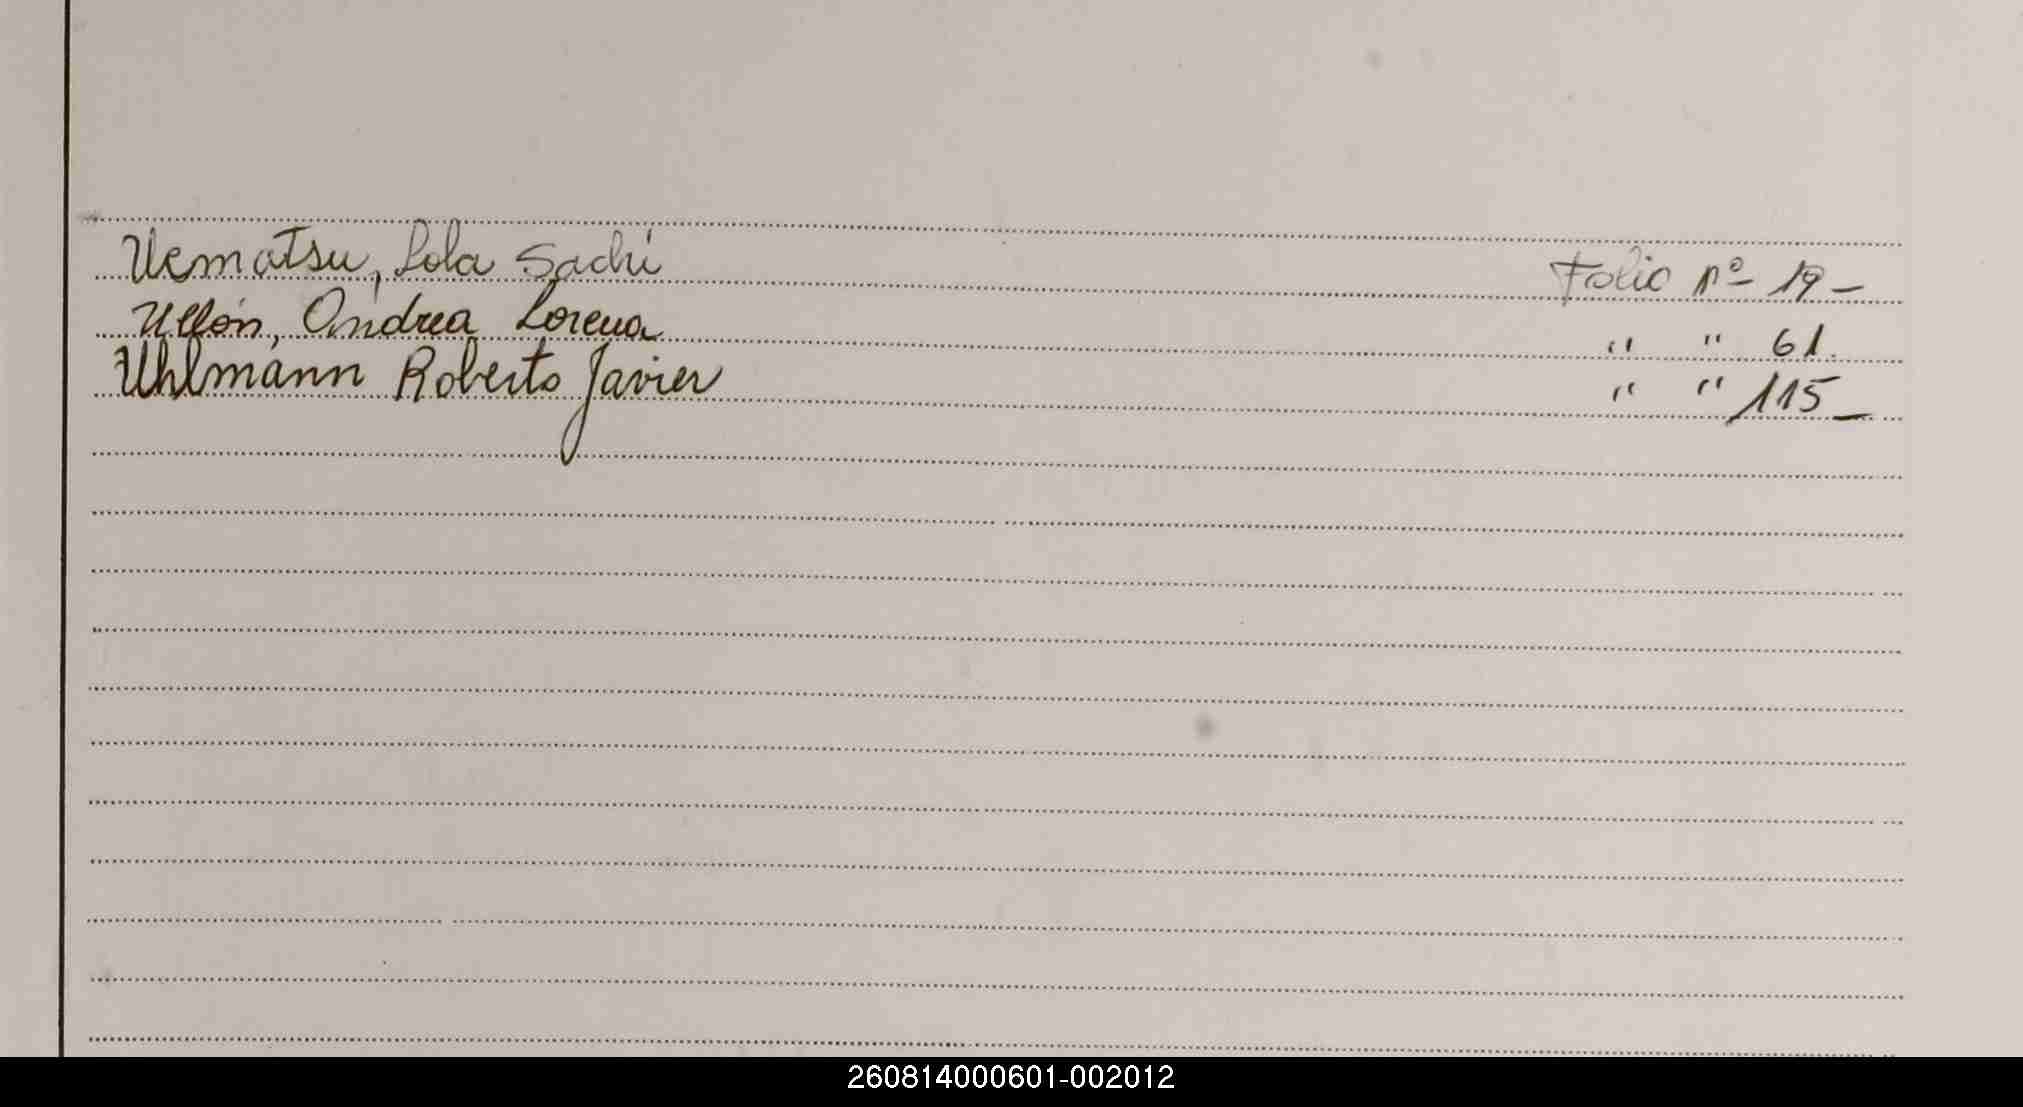 Uematsu, Lola Sachi Folio nº 19 -
Ullón, Andrea Lorena " " 61.
Uhlmann Roberto Javier " " 115 -
260814000601-002012